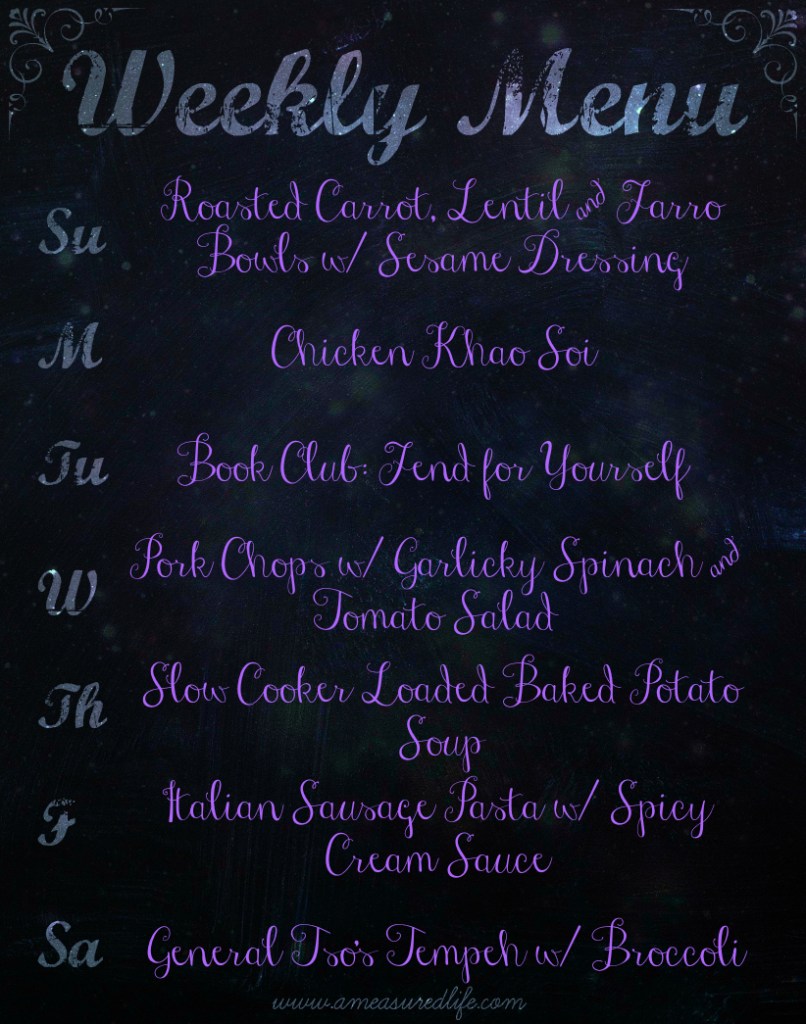 Weekly Menu
Su
Roasted Carrot, Lentil & Farro
Bowls w/ Sesame Dressing
M
Chicken Khao Soi
Tu
Book Club: Fend for Yourself
W
Pork Chops w/ Garlicky Spinach and
Tomato Salad
Th
Slow Cooker Loaded Baked Potato
Soup
F
Italian Sausage Pasta w/ Spicy
Cream Sauce
Sa
General Tso's Tempeh w/ Broccoli
www.ameasuredlife.com